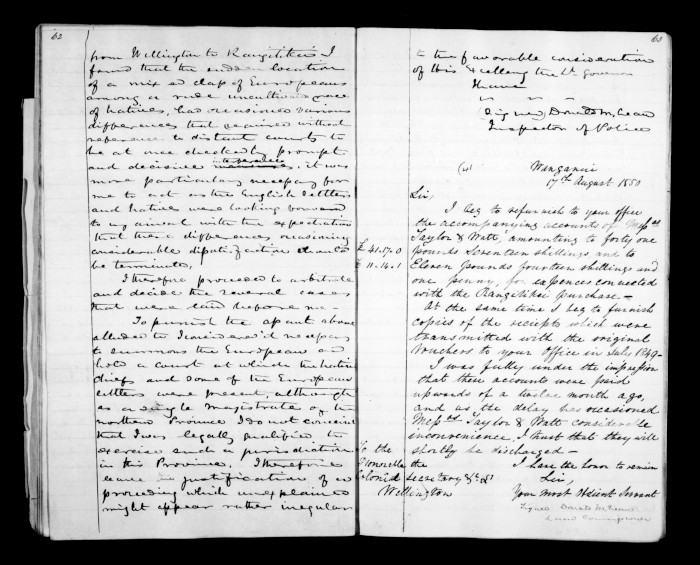 62
from Wellington to Rangitikei I
found that the sudden location
of a mixed class of Europeans
among a rude uncultivated race
of natives, had occasioned various
differences that required without
reference to distant courts to
be at once checked by prompt
and decisive interference, it was
more particularly necessary for
me to act as the English settlers
and natives were looking forward
to my arrival with the expectation
that their differences occasioning
considerable disputes should
be terminated,
I therefore proceeded to arbitrate
and decide the several cases
that were laid before me.
To punish the assault above
alluded to I considered it necessary
to summons the European and
hold a court at which the native
chiefs and some of the European
settlers were present, although
as a single magistrate of the
northern Province I do not conceive
that I was legally qualified to
exercise such a jurisdiction
in this Province. I therefore
leave in justification of a
proceeding which unexplained
might appear rather irregular
63
to the favorable consideration
of His Excellency the Lt Governor
I have
" " "
(Signed) Donald McLean
Inspector of Police
Wanganui
17th August 1850
Sir,
I beg to refurnish to your office
the accompanying accounts of Messrs
Taylor & Watt, amounting to forty one
£ 41.17.0
pounds Seventeen shillings and to
£ 11.14.1
Eleven pounds fourteen shillings and
one penny, for expences connected
with the Rangitikei purchase -
At the same time I beg to furnish
copies of the receipts which were
transmitted with the original
Vouchers to your Office in July 1849 -
I was fully under the impression
that these accounts were paid
upwards of a twelve month ago,
and as the delay has occasioned
Messrs Taylor & Watt considerable
inconvenience, I trust that they will
shortly be discharged -
To the
Honorable the
Colonial Secretary &c &c
Wellington
I have the honor to remain
Sir,
Your most Obedient Servant
Signed Donald McLean
Land Commissioner